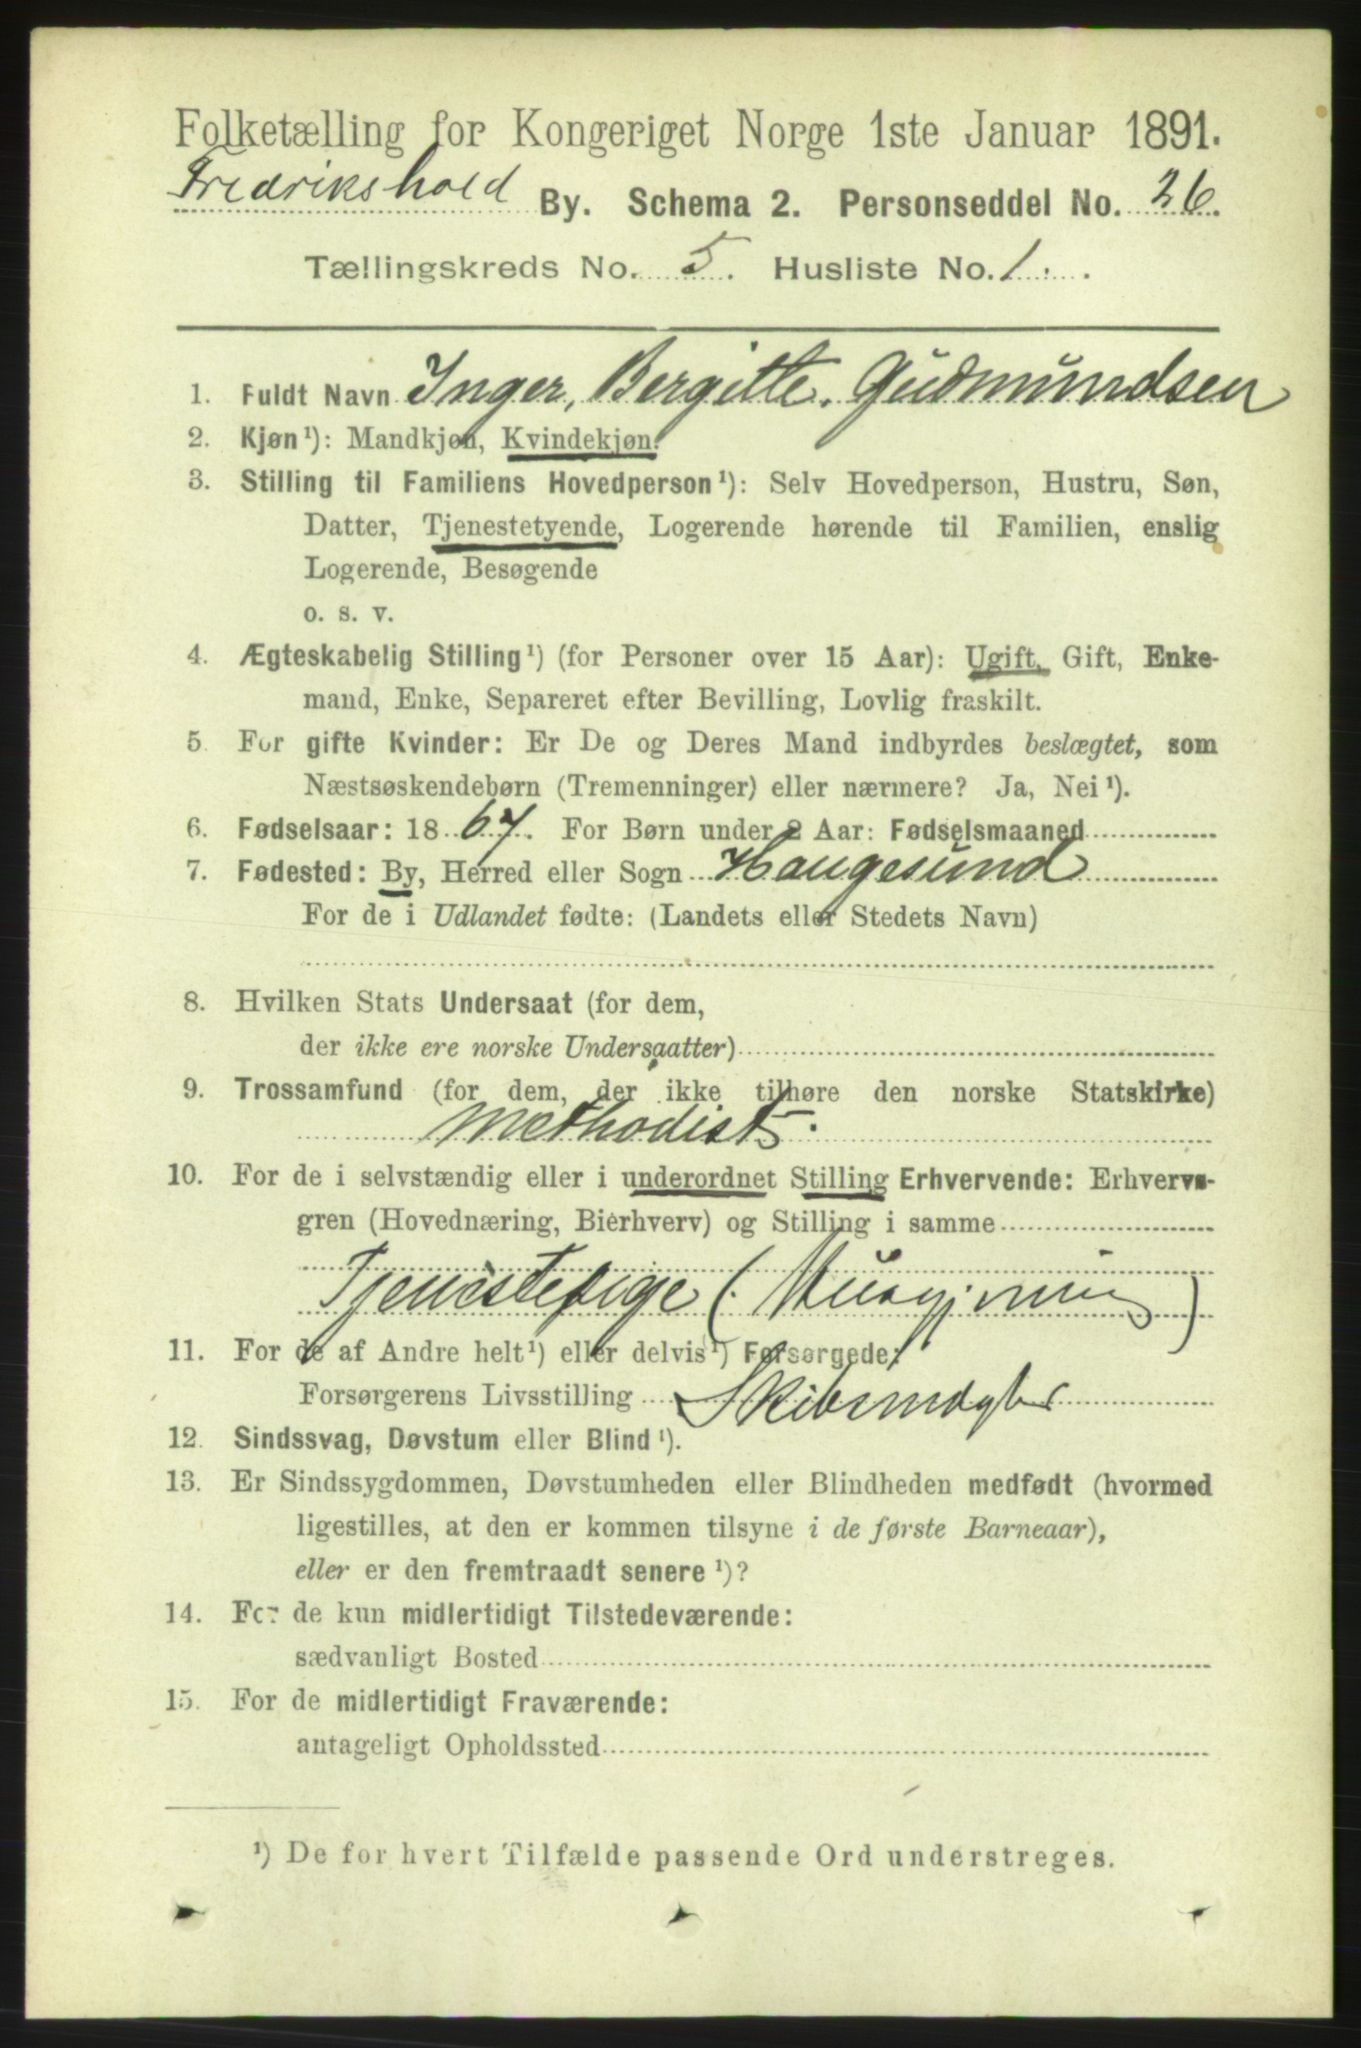 Folketælling for Kongeriget Norge 1ste Januar 1891.
Fredrikshald By. Schema 2. Personseddel No. 26.
Tællingskreds No. 5. Husliste No. 1.
1. Fuldt Navn Inger, Bergitte. Gudmundsen
2. Kjøn¹): Mandkjøn, Kvindekjøn.
3. Stilling til Familiens Hovedperson¹): Selv Hovedperson, Hustru, Søn,
Datter, Tjenestetyende, Logerende hørende til Familien, enslig
Logerende, Besøgende
o. s. v.
4. Ægteskabelig Stilling¹) (for Personer over 15 Aar): Ugift, Gift, Enke-
mand, Enke, Separeret efter Bevilling, Lovlig fraskilt.
5 For gifte Kvinder: Er De og Deres Mand indbyrdes beslægtet, som
Næstsøskendebørn (Tremenninger) eller nærmere? Ja, Nei¹).
6. Fødselsaar: 1867. For Børn under 2 Aar: Fødselsmaaned
7. Fødested: By, Herred eller Sogn Haugesund
For de i Udlandet fødte: (Landets eller Stedets Navn)
8. Hvilken Stats Undersaat (for dem,
der ikke ere norske Undersaatter)
9. Trossamfund (for dem, der ikke tilhøre den norske Statskirke)
Methodist.
10. For de i selvstændig eller i underordnet Stilling Erhvervende: Erhvervs-
gren (Hovednæring, Bierhverv) og Stilling i samme
Tjenestepige (Husgjerning)
11. For de af Andre helt¹) eller delvis¹) Forsørgede:
Forsørgerens Livsstilling Skibsmægler
12. Sindssvag, Døvstum eller Blind¹).
13. Er Sindssygdommen, Døvstumheden eller Blindheden medfødt (hvormed
ligestilles, at den er kommen tilsyne i de første Barneaar),
eller er den fremtraadt senere¹)?
14. For de kun midlertidigt Tilstedeværende:
sædvanligt Bosted
15. For de midlertidigt Fraværende:
antageligt Opholdssted
¹) De for hvert Tilfælde passende Ord understreges.